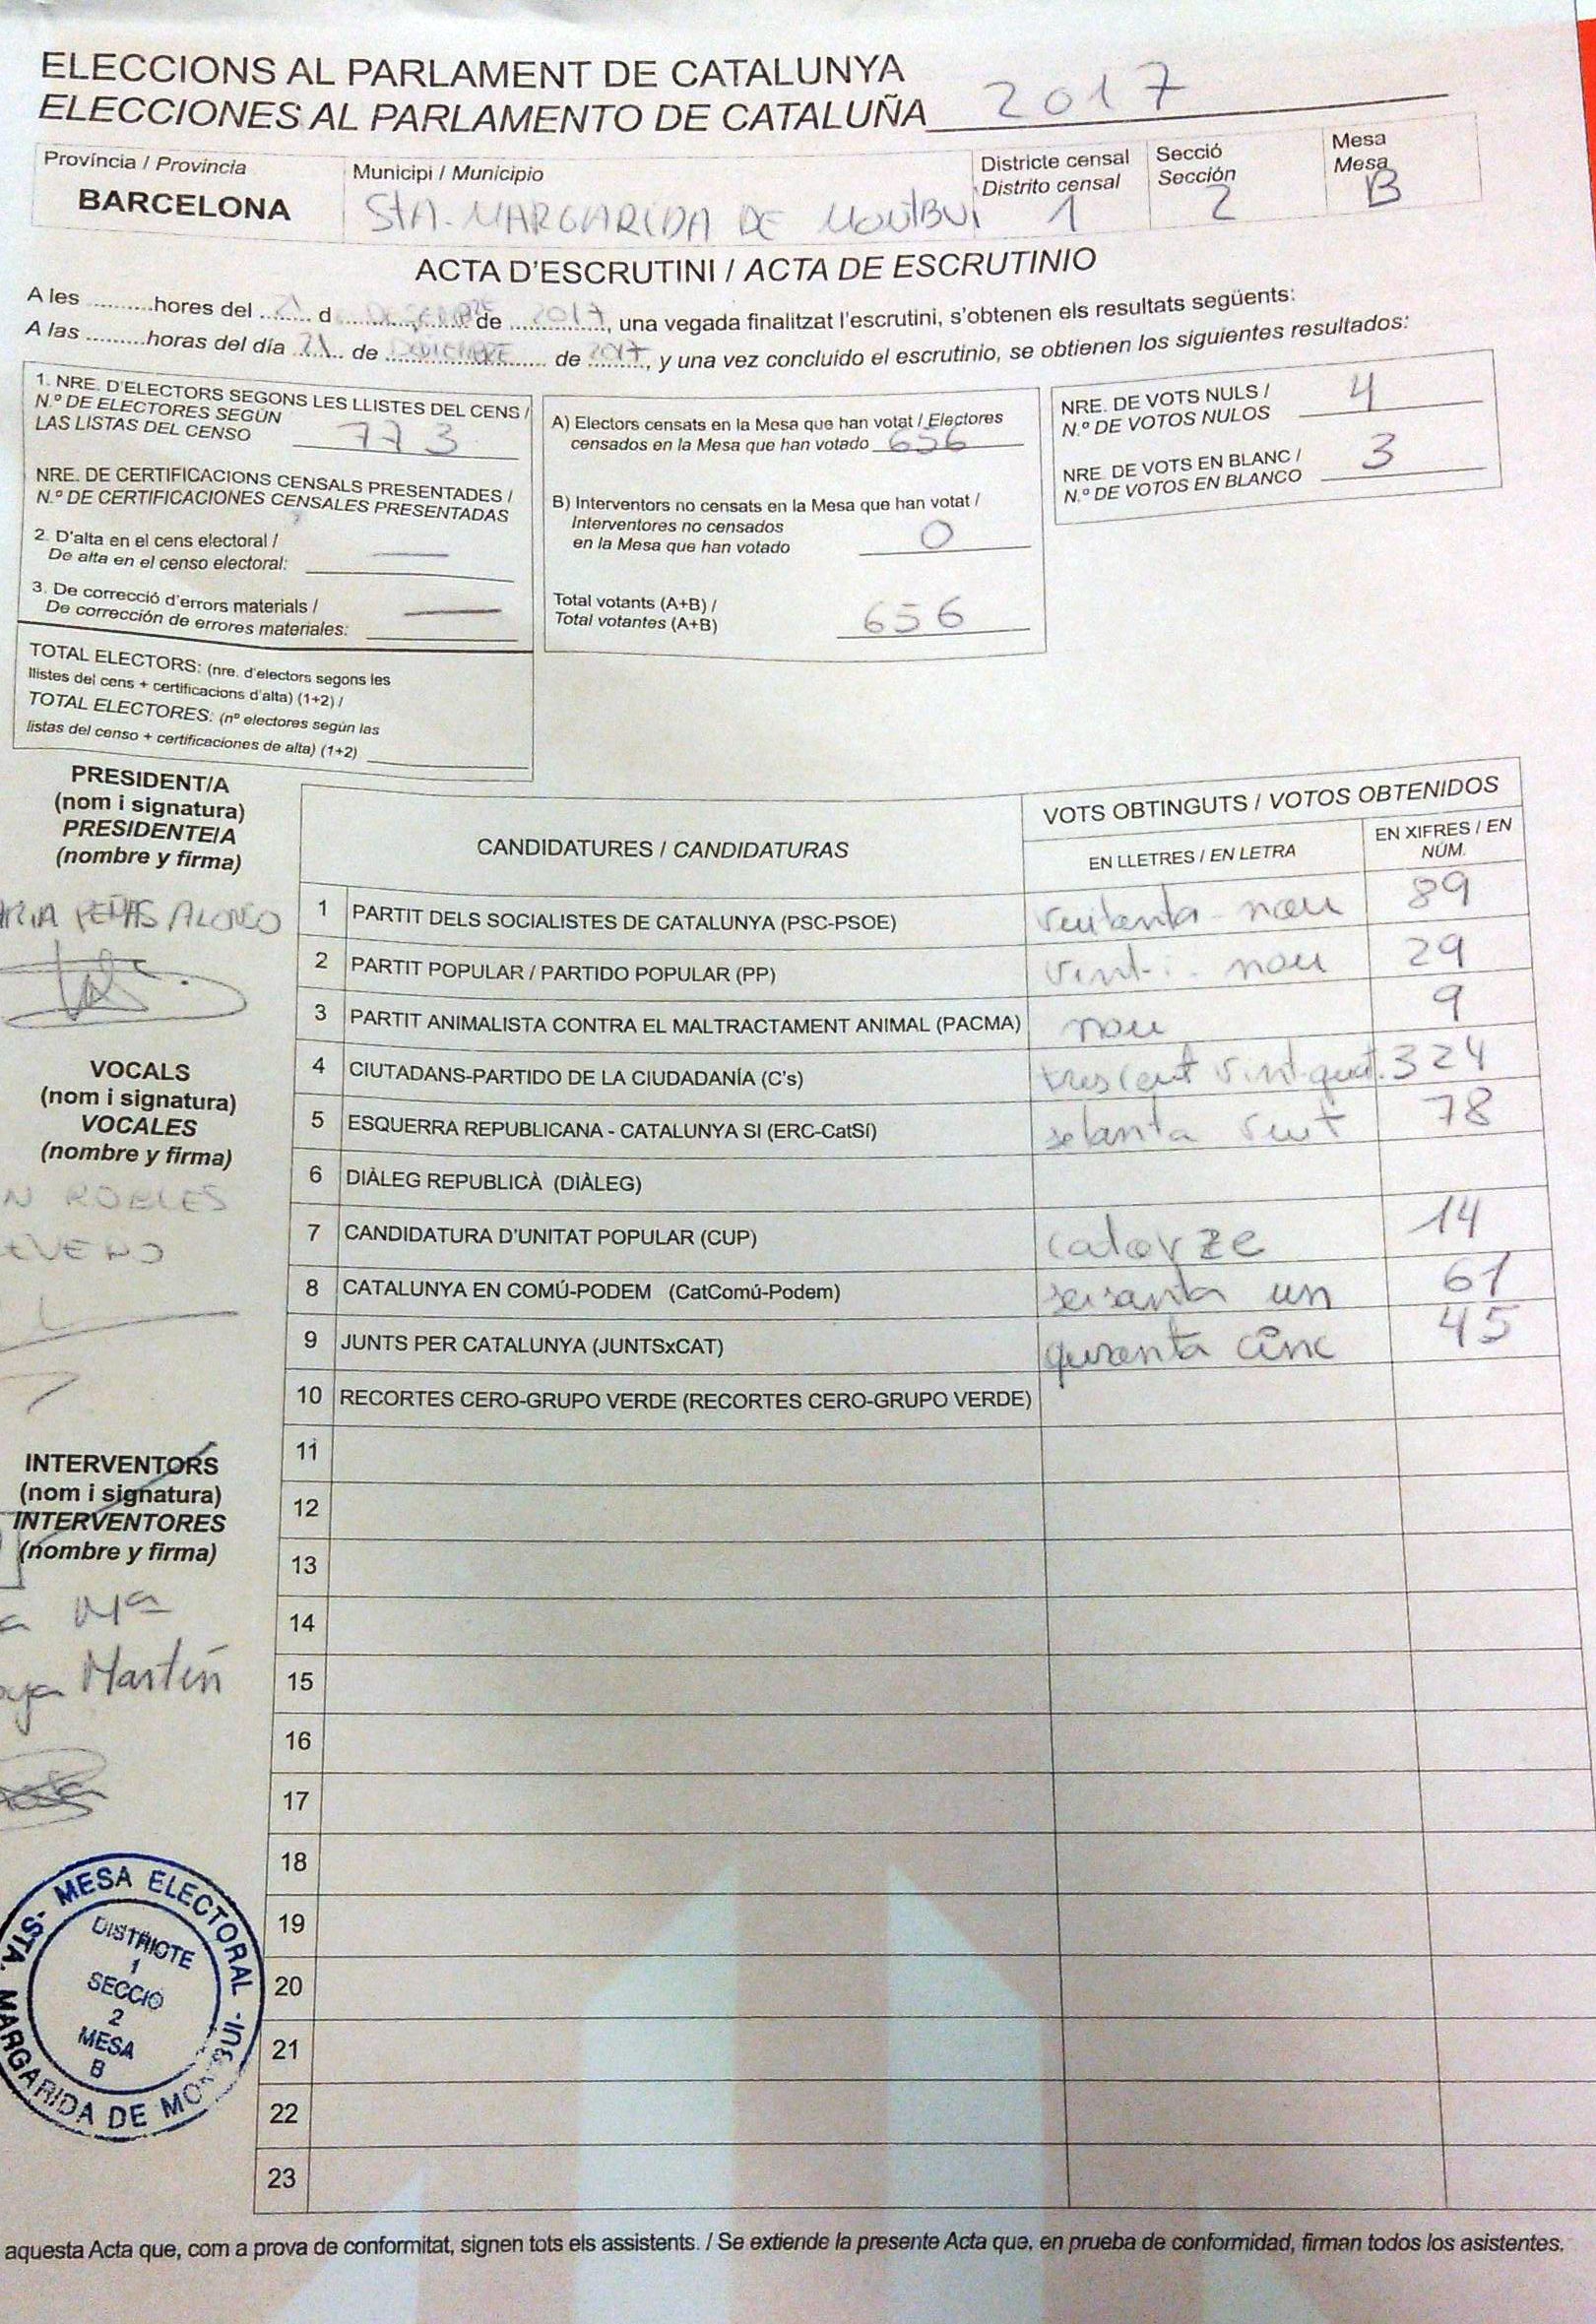 ELECCIONS AL PARLAMENT DE CATALUNYA
ELECCIONES AL PARLAMENTO DE CATALUÑA 2017
Província / Provincia
BARCELONA
Municipi / Municipio
STA. MARGARIDA DE MONTBUI
Districte censal
Distrito censal
1
Secció
Sección
2
Mesa
Mesa
B
ACTA D'ESCRUTINI / ACTA DE ESCRUTINIO
A les .........hores del 21 d DESEMBRE de 2017, una vegada finalitzat l'escrutini, s'obtenen els resultats següents:
A las .........horas del día 21 de DICIEMBRE de 2017, y una vez concluido el escrutinio, se obtienen los siguientes resultados:
1. NRE. D'ELECTORS SEGONS LES LLISTES DEL CENS /
N.º DE ELECTORES SEGÚN
LAS LISTAS DEL CENSO 773
NRE. DE CERTIFICACIONS CENSALS PRESENTADES /
N.º DE CERTIFICACIONES CENSALES PRESENTADAS
2. D'alta en el cens electoral /
De alta en el censo electoral: —
3. De correcció d'errors materials /
De corrección de errores materiales: —
TOTAL ELECTORS: (nre. d'electors segons les
llistes del cens + certificacions d'alta) (1+2) /
TOTAL ELECTORES: (nº electores según las
listas del censo + certificaciones de alta) (1+2)
A) Electors censats en la Mesa que han votat / Electores
censados en la Mesa que han votado 656
B) Interventors no censats en la Mesa que han votat /
Interventores no censados
en la Mesa que han votado 0
Total votants (A+B) /
Total votantes (A+B) 656
NRE. DE VOTS NULS /
N.º DE VOTOS NULOS 4
NRE. DE VOTS EN BLANC /
N.º DE VOTOS EN BLANCO 3
PRESIDENT/A
(nom i signatura)
PRESIDENTE/A
(nombre y firma)
PEÑAS ALONSO
VOCALS
(nom i signatura)
VOCALES
(nombre y firma)
ROBLES
INTERVENTORS
(nom i signatura)
INTERVENTORES
(nombre y firma)
Mª
Martín
CANDIDATURES / CANDIDATURAS
VOTS OBTINGUTS / VOTOS OBTENIDOS
EN LLETRES / EN LETRA
EN XIFRES / EN
NÚM.
1 PARTIT DELS SOCIALISTES DE CATALUNYA (PSC-PSOE) vuitanta-nou 89
2 PARTIT POPULAR / PARTIDO POPULAR (PP) vint-i-nou 29
3 PARTIT ANIMALISTA CONTRA EL MALTRACTAMENT ANIMAL (PACMA) nou 9
4 CIUTADANS-PARTIDO DE LA CIUDADANÍA (C's) trescent vint-quat. 324
5 ESQUERRA REPUBLICANA - CATALUNYA SI (ERC-CatSí) setanta vuit 78
6 DIÀLEG REPUBLICÀ (DIÀLEG)
7 CANDIDATURA D'UNITAT POPULAR (CUP) catorze 14
8 CATALUNYA EN COMÚ-PODEM (CatComú-Podem) seisanta un 61
9 JUNTS PER CATALUNYA (JUNTSxCAT) quranta cinc 45
10 RECORTES CERO-GRUPO VERDE (RECORTES CERO-GRUPO VERDE)
11
12
13
14
15
16
17
18
19
20
21
22
23
MESA ELECTORAL
STA. MARGARIDA DE
DISTRICTE
1
SECCIO
2
MESA
B
aquesta Acta que, com a prova de conformitat, signen tots els assistents. / Se extiende la presente Acta que, en prueba de conformidad, firman todos los asistentes.